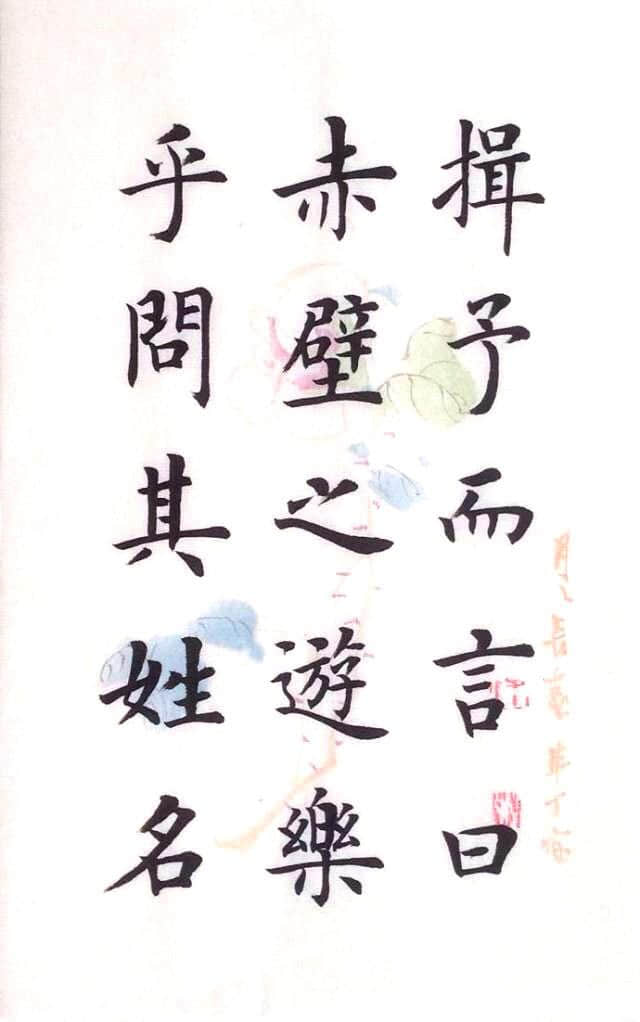 揖予而言曰
赤壁之遊樂
乎問其姓名